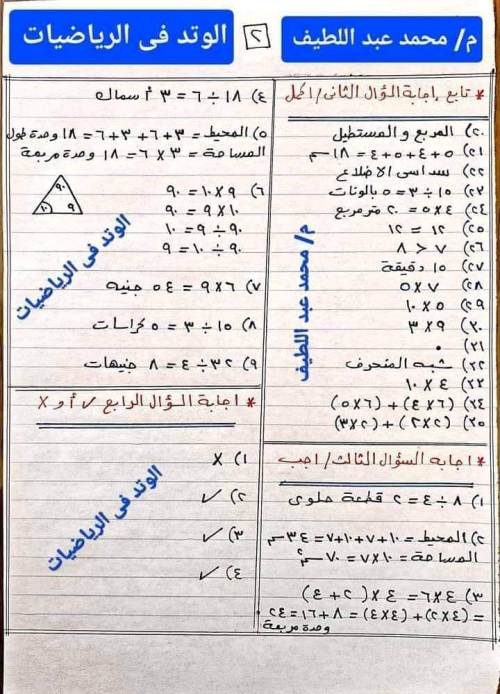 م/ محمد عبد اللطيف
٢
الوتد فى الرياضيات
* تابع إجابة السؤال الثانى / أكمل
٢٠) المربع و المستطيل
٢١) ٥ + ٤ + ٥ + ٤ = ١٨ سم
٢٢) سداسى الأضلاع
٢٣) ١٥ ÷ ٣ = ٥ بالونات
٢٤) ٤ × ٥ = ٢٠ متر مربع
٢٥) ١٢ = ١٢
٢٦) ٧ < ٨
٢٧) ١٥ دقيقة
٢٨) ٧ × ٥
٢٩) ٥ × ١٠
٣٠) ٩ × ٣
٣١) ٠
٣٢) شبه المنحرف
٣٣) ٤ × ١٠
٣٤) (٦ × ٤) + (٦ × ٥)
٣٥) (٢ × ٢) + (٢ × ٣)
* اجابة السؤال الثالث / اجب
١) ٨ ÷ ٤ = ٢ قطعة حلوى
٢) المحيط = ١٠ + ٧ + ١٠ + ٧ = ٣٤ سم
المساحة = ١٠ × ٧ = ٧٠ سم٢
٣) ٤ × ٦ = ٤ × (٢ + ٤)
= (٤ × ٢) + (٤ × ٤) = ٨ + ١٦ = ٢٤
وحدة مربعة
٤) ١٨ ÷ ٦ = ٣ أسماك
٥) المحيط = ٣ + ٦ + ٣ + ٦ = ١٨ وحدة طول
المساحة = ٣ × ٦ = ١٨ وحدة مربعة
٦) ٩ × ١٠ = ٩٠
١٠ × ٩ = ٩٠
٩٠ ÷ ٩ = ١٠
٩٠ ÷ ١٠ = ٩
٩٠
١٠ ٩
٧) ٦ × ٩ = ٥٤ جنيه
٨) ١٥ ÷ ٣ = ٥ كراسات
٩) ٣٢ ÷ ٤ = ٨ جنيهات
* اجابة السؤال الرابع ✓ أو X
١) X
٢) ✓
٣) ✓
٤) ✓
م/ محمد عبد اللطيف
الوتد فى الرياضيات
الوتد فى الرياضيات